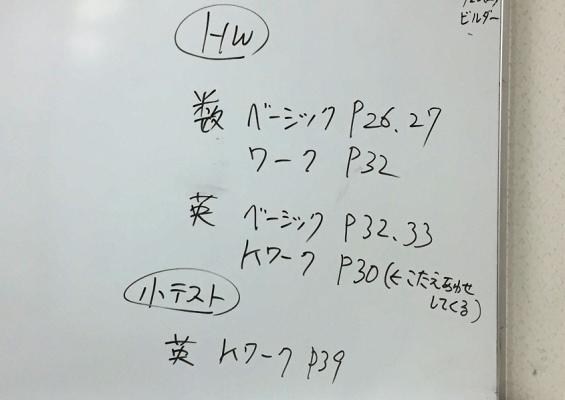 ビルダー
HW
数 ベーシック P26.27
ワーク P32
英 ベーシック P32.33
Kワーク P30(とこたえあわせ
してくる)
小テスト
英 Kワーク P39